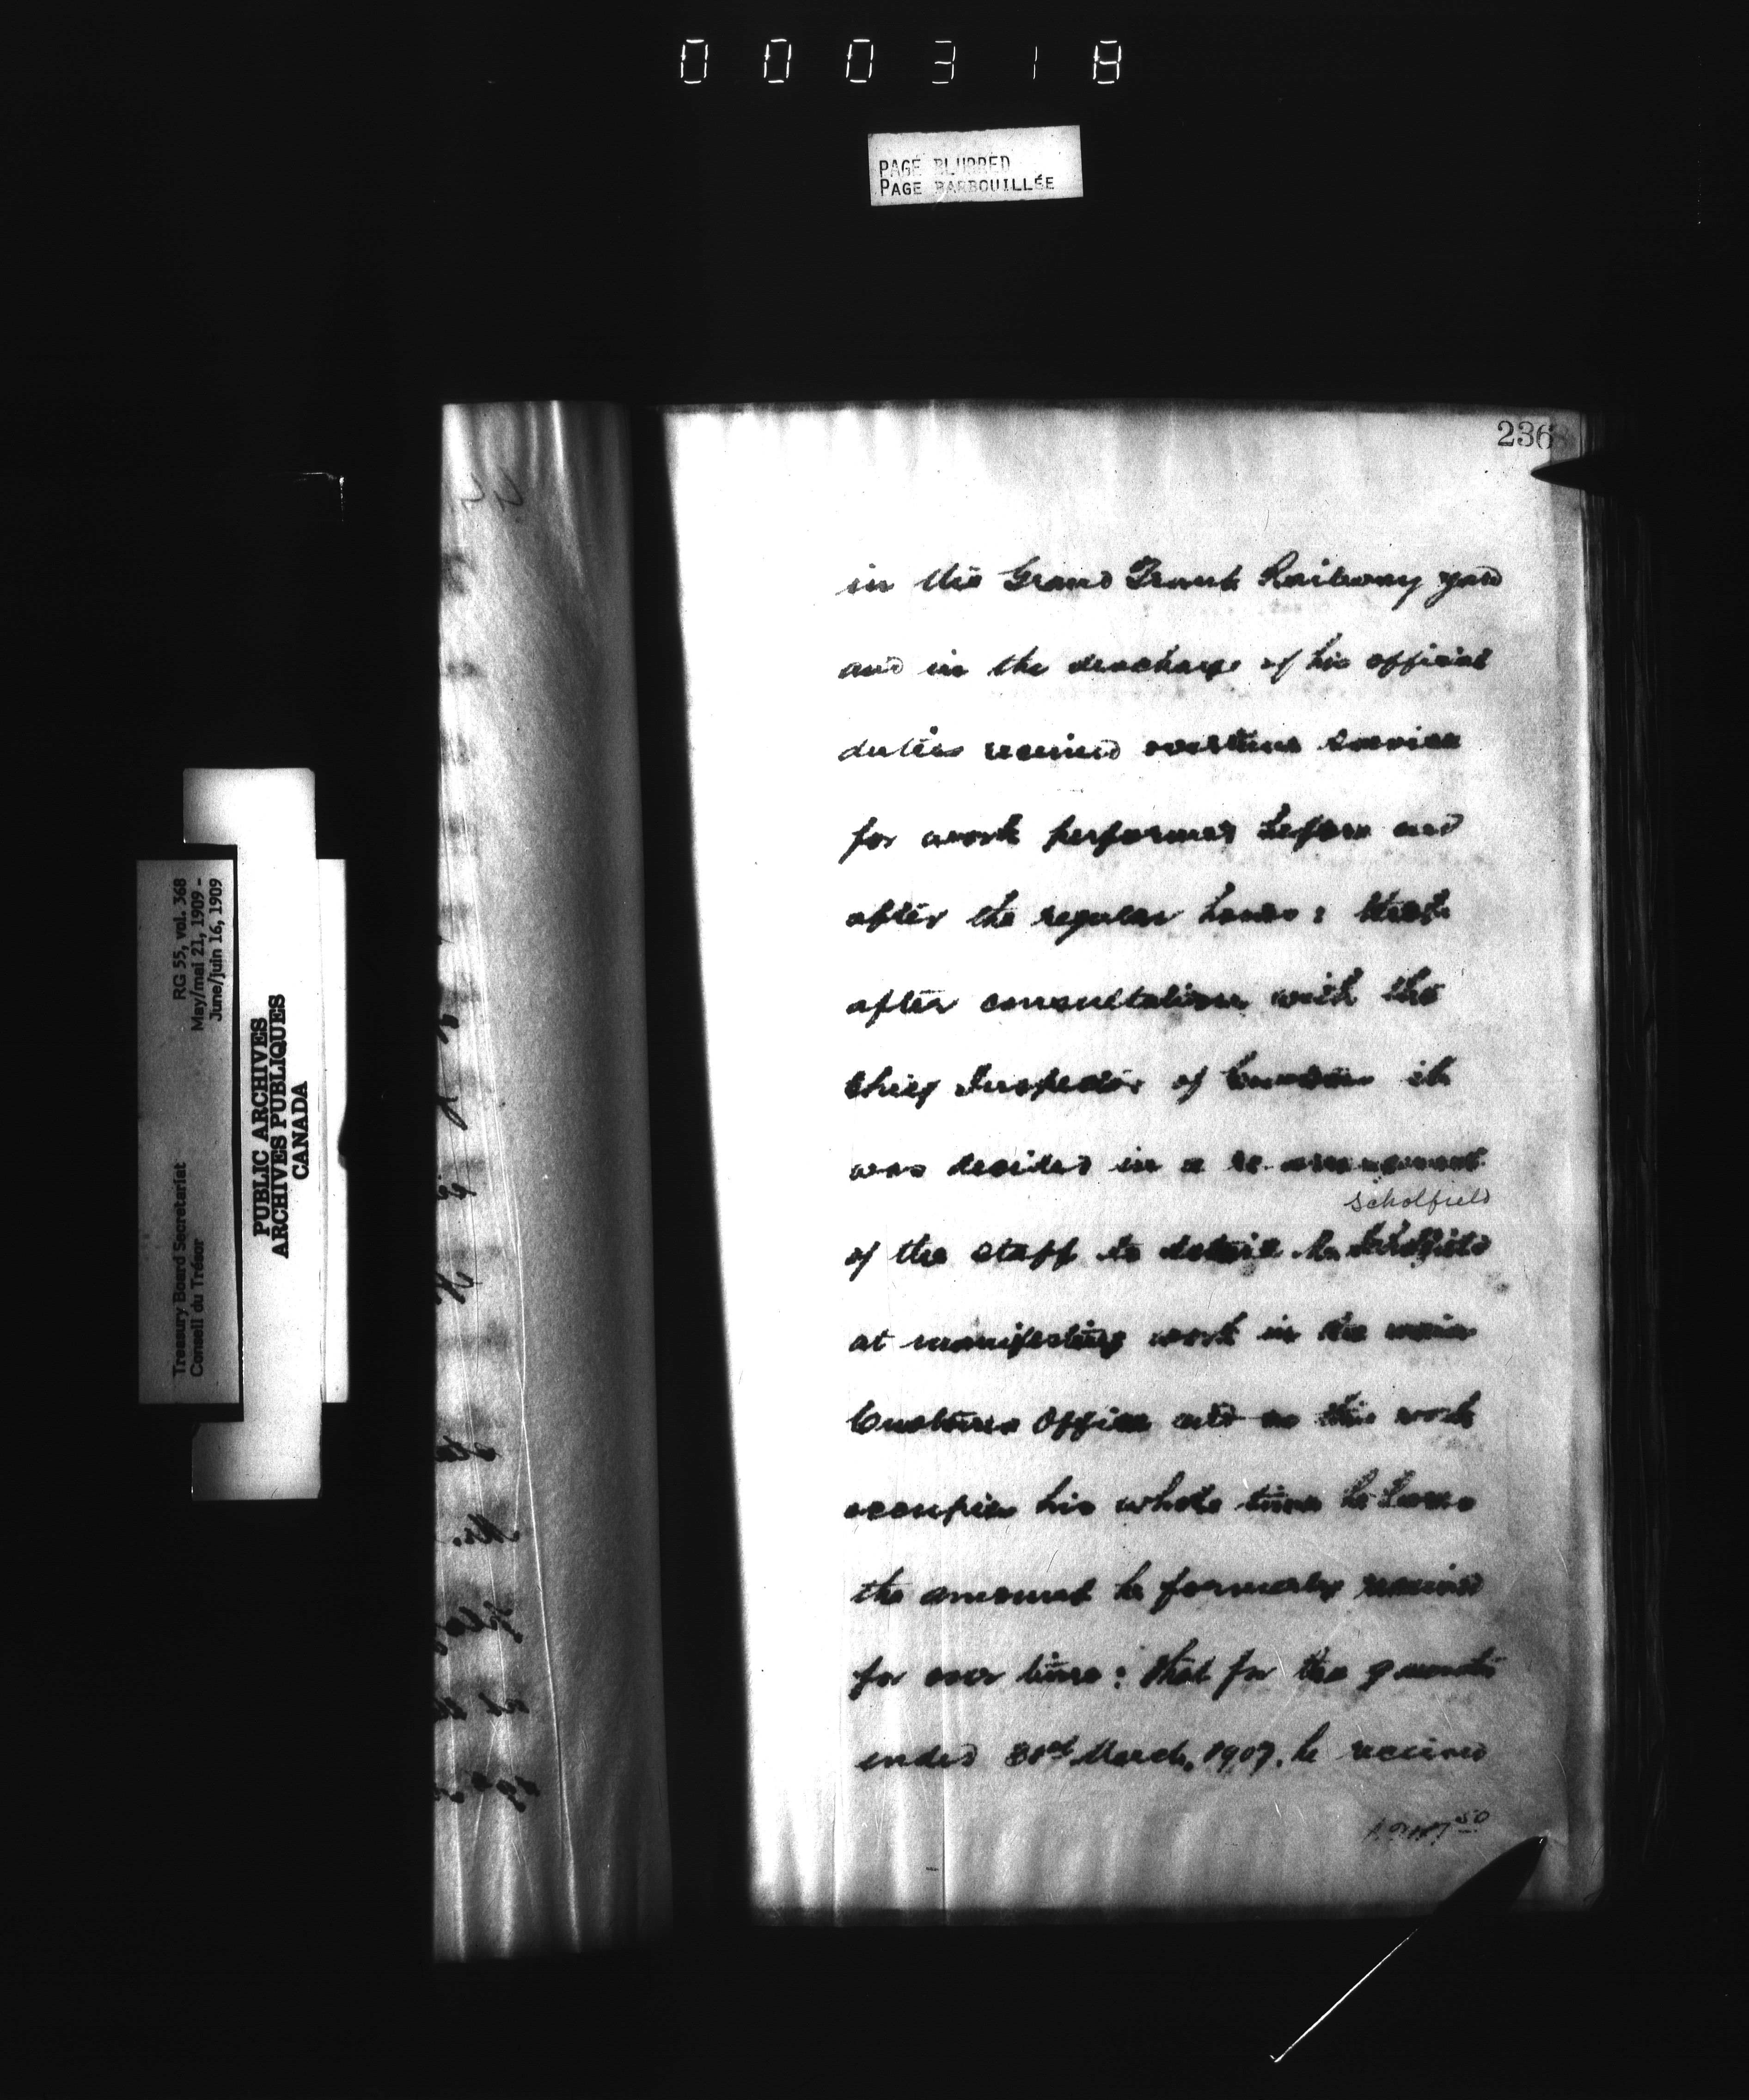 000318
PAGE BLURRED
PAGE BARBOUILLÉE
236
in the Grand Trunk Railway yard
and in the discharge of his official
duties received overtime services
for work performed before and
after the regular hours: that
after consultation with the
Chief Inspector of Customs it
was decided in a re-arrangement
Scholfield
of the staff to detail Mr Scholfield
at manifesting work in the main
Customs Office and as this work
occupies his whole time he loses
the amount he formerly received
for over time: that for the 9 months
ended 31st March, 1907, he received
50
RG 55, vol. 368
May/mai 21, 1909 -
June/juin 16, 1909
Treasury Board Secretariat
Conseil du Trésor
PUBLIC ARCHIVES
ARCHIVES PUBLIQUES
CANADA